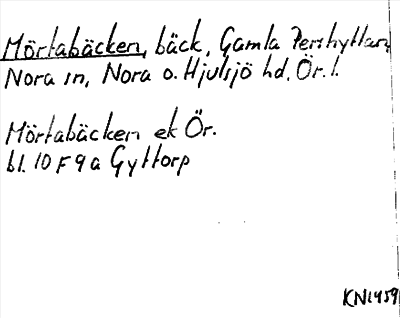 Mörtabäcken, bäck, Gamla Pershyttan,
Nora sn, Nora o. Hjulsjö hd, Ör. l.
Mörtabäcken ek Ör.
bl. 10 F 9 a Gyttorp
KN1959